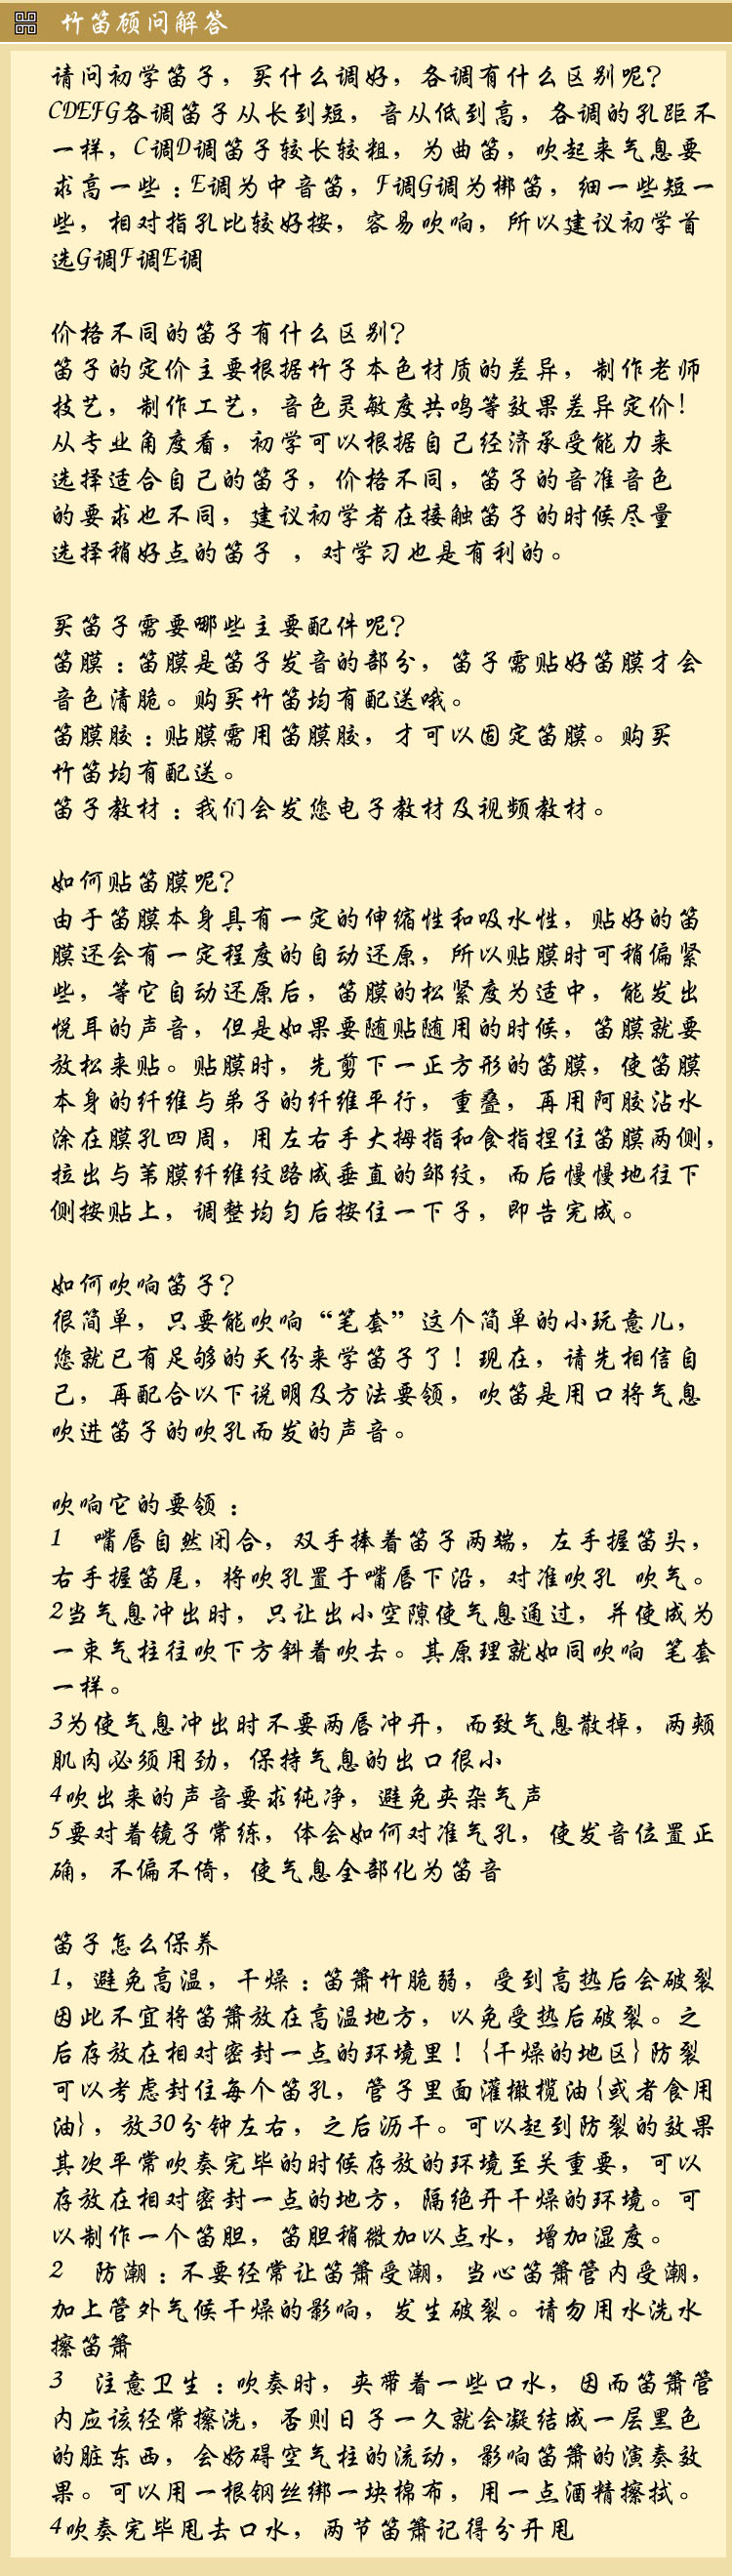 竹笛顾问解答
请问初学笛子，买什么调好，各调有什么区别呢？
CDEFG各调笛子从长到短，音从低到高，各调的孔距不
一样，C调D调笛子较长较粗，为曲笛，吹起来气息要
求高一些：E调为中音笛，F调G调为梆笛，细一些短一
些，相对指孔比较好按，容易吹响，所以建议初学首
选G调F调E调
价格不同的笛子有什么区别？
笛子的定价主要根据竹子本色材质的差异，制作老师
技艺，制作工艺，音色灵敏度共鸣等效果差异定价！
从专业角度看，初学可以根据自己经济承受能力来
选择适合自己的笛子，价格不同，笛子的音准音色
的要求也不同，建议初学者在接触笛子的时候尽量
选择稍好点的笛子 ，对学习也是有利的。
买笛子需要哪些主要配件呢？
笛膜：笛膜是笛子发音的部分，笛子需贴好笛膜才会
音色清脆。购买竹笛均有配送哦。
笛膜胶：贴膜需用笛膜胶，才可以固定笛膜。购买
竹笛均有配送。
笛子教材：我们会发您电子教材及视频教材。
如何贴笛膜呢？
由于笛膜本身具有一定的伸缩性和吸水性，贴好的笛
膜还会有一定程度的自动还原，所以贴膜时可稍偏紧
些，等它自动还原后，笛膜的松紧度为适中，能发出
悦耳的声音，但是如果要随贴随用的时候，笛膜就要
放松来贴。贴膜时，先剪下一正方形的笛膜，使笛膜
本身的纤维与弟子的纤维平行，重叠，再用阿胶沾水
涂在膜孔四周，用左右手大拇指和食指捏住笛膜两侧，
拉出与苇膜纤维纹路成垂直的邹纹，而后慢慢地往下
侧按贴上，调整均匀后按住一下子，即告完成。
如何吹响笛子？
很简单，只要能吹响“笔套”这个简单的小玩意儿，
您就已有足够的天份来学笛子了！现在，请先相信自
己，再配合以下说明及方法要领，吹笛是用口将气息
吹进笛子的吹孔而发的声音。
吹响它的要领：
1 嘴唇自然闭合，双手捧着笛子两端，左手握笛头，
右手握笛尾，将吹孔置于嘴唇下沿，对准吹孔 吹气。
2当气息冲出时，只让出小空隙使气息通过，并使成为
一束气柱往吹下方斜着吹去。其原理就如同吹响 笔套
一样。
3为使气息冲出时不要两唇冲开，而致气息散掉，两颊
肌肉必须用劲，保持气息的出口很小
4吹出来的声音要求纯净，避免夹杂气声
5要对着镜子常练，体会如何对准气孔，使发音位置正
确，不偏不倚，使气息全部化为笛音
笛子怎么保养
1，避免高温，干燥：笛箫竹脆弱，受到高热后会破裂
因此不宜将笛箫放在高温地方，以免受热后破裂。之
后存放在相对密封一点的环境里！{干燥的地区}防裂
可以考虑封住每个笛孔，管子里面灌橄榄油{或者食用
油}，放30分钟左右，之后沥干。可以起到防裂的效果
其次平常吹奏完毕的时候存放的环境至关重要，可以
存放在相对密封一点的地方，隔绝开干燥的环境。可
以制作一个笛胆，笛胆稍微加以点水，增加湿度。
2 防潮：不要经常让笛箫受潮，当心笛箫管内受潮，
加上管外气候干燥的影响，发生破裂。请勿用水洗水
擦笛箫
3 注意卫生：吹奏时，夹带着一些口水，因而笛箫管
内应该经常擦洗，否则日子一久就会凝结成一层黑色
的脏东西，会妨碍空气柱的流动，影响笛箫的演奏效
果。可以用一根钢丝绑一块棉布，用一点酒精擦拭。
4吹奏完毕甩去口水，两节笛箫记得分开甩